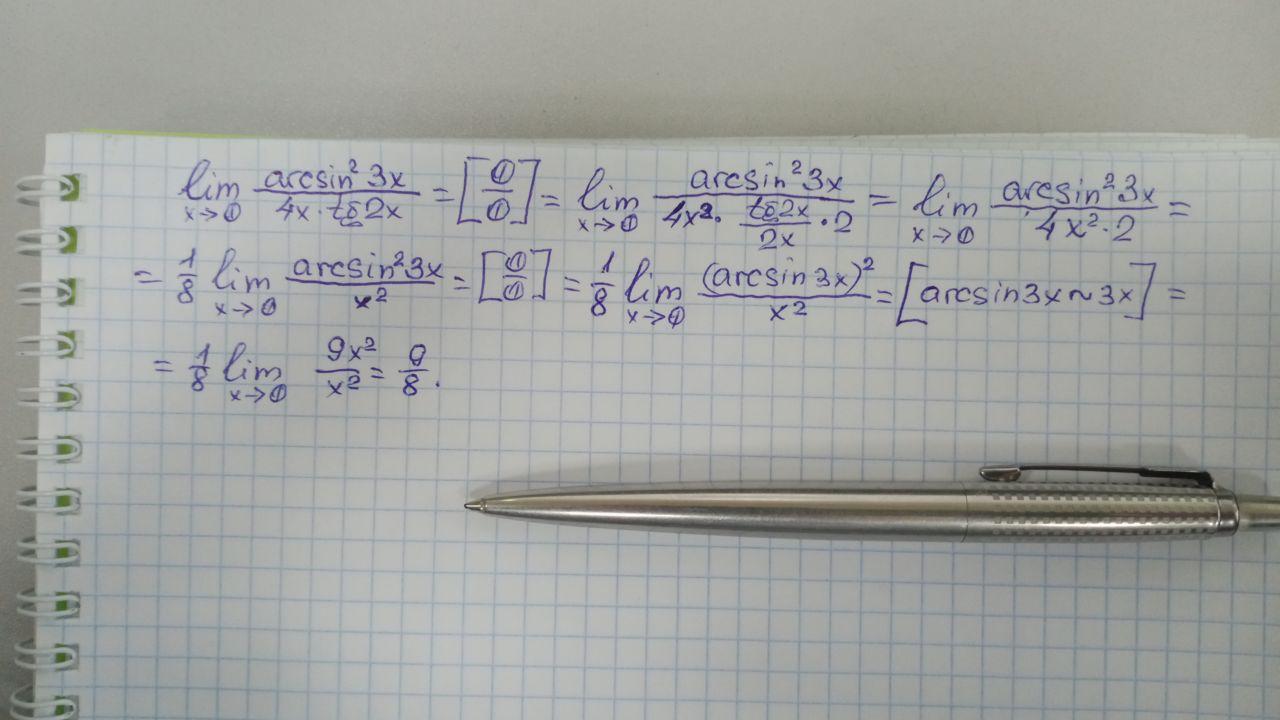 lim x→0 arcsin² 3x / 4x · tg2x = [0/0] = lim x→0 arcsin² 3x / 4x² · tg2x/2x · 2 = lim x→0 arcsin² 3x / 4x² · 2 =
= 1/8 lim x→0 arcsin² 3x / x² = [0/0] = 1/8 lim x→0 (arcsin 3x)² / x² = [arcsin 3x ~ 3x] =
= 1/8 lim x→0 9x² / x² = 9/8 .